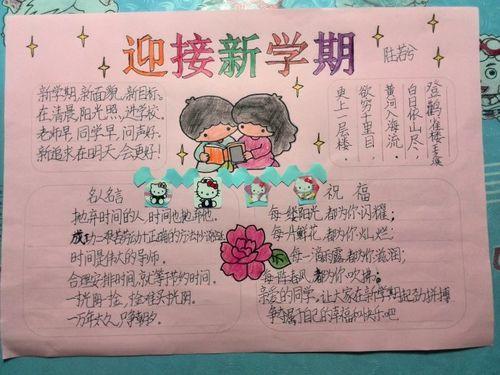 迎接新学期
陆若兮
新学期,新面貌,新目标。
在清晨,阳光照,进学校。
老师早,同学早,问声好。
新追求,在明天,会更好!
登鹳雀楼
白日依山尽,
黄河入海流。
欲穷千里目,
更上一层楼。
名人名言
抛弃时间的人,时间也抛弃他。
成功=艰苦劳动+正确的方法+少说空话
时间是伟大的导师。
合理安排时间,就等于节约时间。
一寸光阴一寸金,寸金难买寸光阴。
一万年太久,只争朝夕。
祝福
每一缕阳光,都为你闪耀;
每一片鲜花,都为你灿烂;
每一滴雨露,都为你滋润;
每一阵春风,都为你吹拂;
亲爱的同学,让大家在新学期起劲拼搏
争夺属于自己的幸福和快乐吧